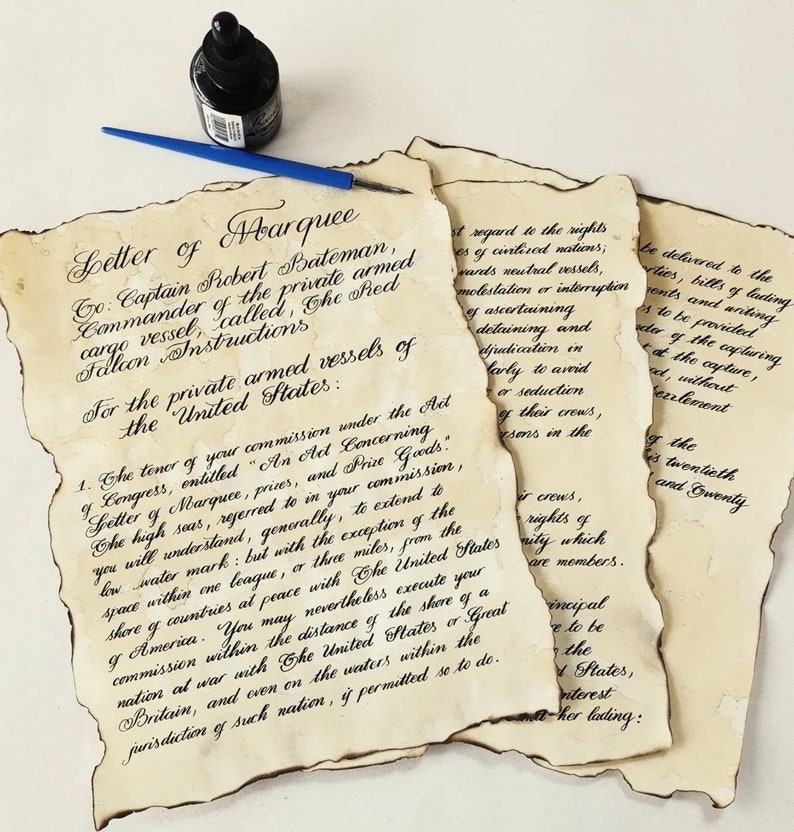 Letter of Marquee
To: Captain Robert Bateman,
Commander of the private armed
cargo vessel, called, The Red
Falcon Instructions
For the private armed vessels of
the United States:
1. The tenor of your commission under the Act
of Congress, entitled "An Act Concerning
Letter of Marquee, prizes, and Prize Goods."
The high seas, referred to in your commission,
you will understand, generally, to extend to
low water mark: but with the exception of the
space within one league, or three miles, from the
shore of countries at peace with The United States
of America. You may nevertheless execute your
commission within the distance of the shore of a
nation at war with The United States or Great
Britain, and even on the waters within the
jurisdiction of such nation, if permitted so to do.
st regard to the rights
es of civilized nations;
wards neutral vessels,
molestation or interruption
of ascertaining
detaining and
djudication in
larly to avoid
or seduction
of their crews,
rsons in the
ir crews,
rights of
nity which
are members.
incipal
re to be
the
d States,
interest
her lading:
be delivered to the
rties, bills of lading
ents and writing
s to be provided
der of the capturing
t at the capture,
od, without
ezzlement
of the
is twentieth
and Twenty